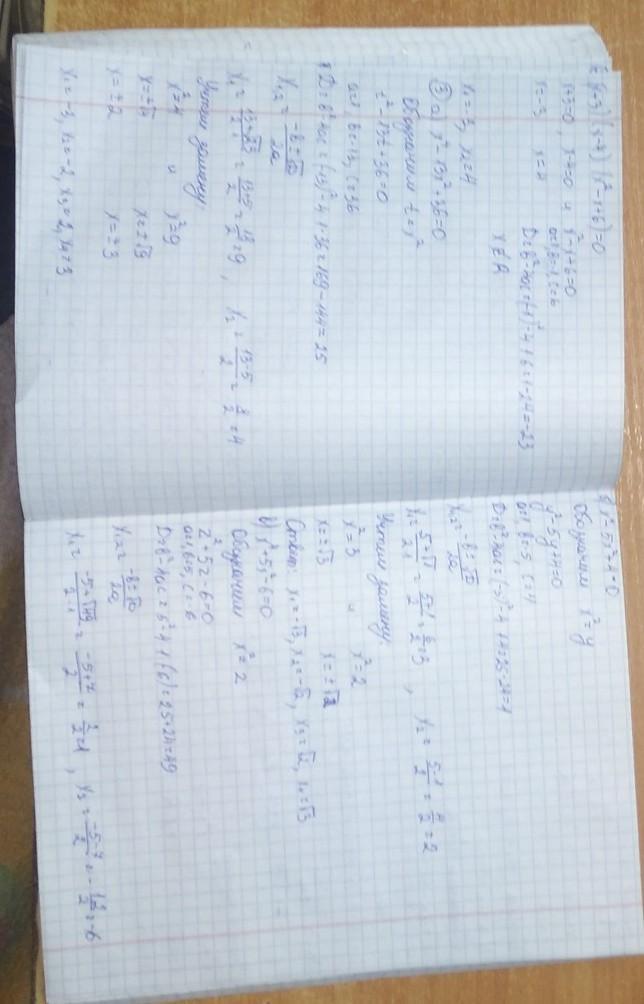 (x-3) (x-7) (x²-x+6)=0
x+3=0, x-7=0 и x²-x+6=0
x=-3 x=7 a=1, b=-1, c=6
D=b²-4ac=(-1)²-4·1·6=1-24=-23
x∉R
x₁=-3, x₂=7
③ а) x⁴-13x²+36=0
Обозначим t=x²
t²-13t+36=0
a=1, b=-13, c=36
D=b²-4ac=(-13)²-4·1·36=169-144=25
x₁,₂=(-b±√D)/2a
x₁=(13+√25)/2·1=(13+5)/2=18/2=9, x₂=(13-5)/2=8/2=4
Учтём замену:
x²=4 и x²=9
x=±√4 x=±√9
x=±2 x=±3
x₁=-3, x₂=-2, x₃=2, x₄=3
Обозначим x²=y
y²-5y+4=0
a=1, b=-5, c=4
x₁,₂=(-b±√D)/2a
x₁=(5+√1)/2·1=(5+1)/2=6/2=3, x₂=(5-1)/2=4/2=2
Учтём замену:
x²=3 и x²=2
x=±√3 x=±√2
Ответ: x₁=-√3, x₂=-√2, x₃=√2, x₄=√3
в) x⁴+5x²-6=0
Обозначим x²=z
z²+5z-6=0
a=1, b=5, c=-6
D=b²-4ac=5²-4·1·(-6)=25+24=49
x₁,₂=(-b±√D)/2a
x₁=(-5+√49)/2·1=(-5+7)/2=2/2=1, x₂=(-5-7)/2=-12/2=-6